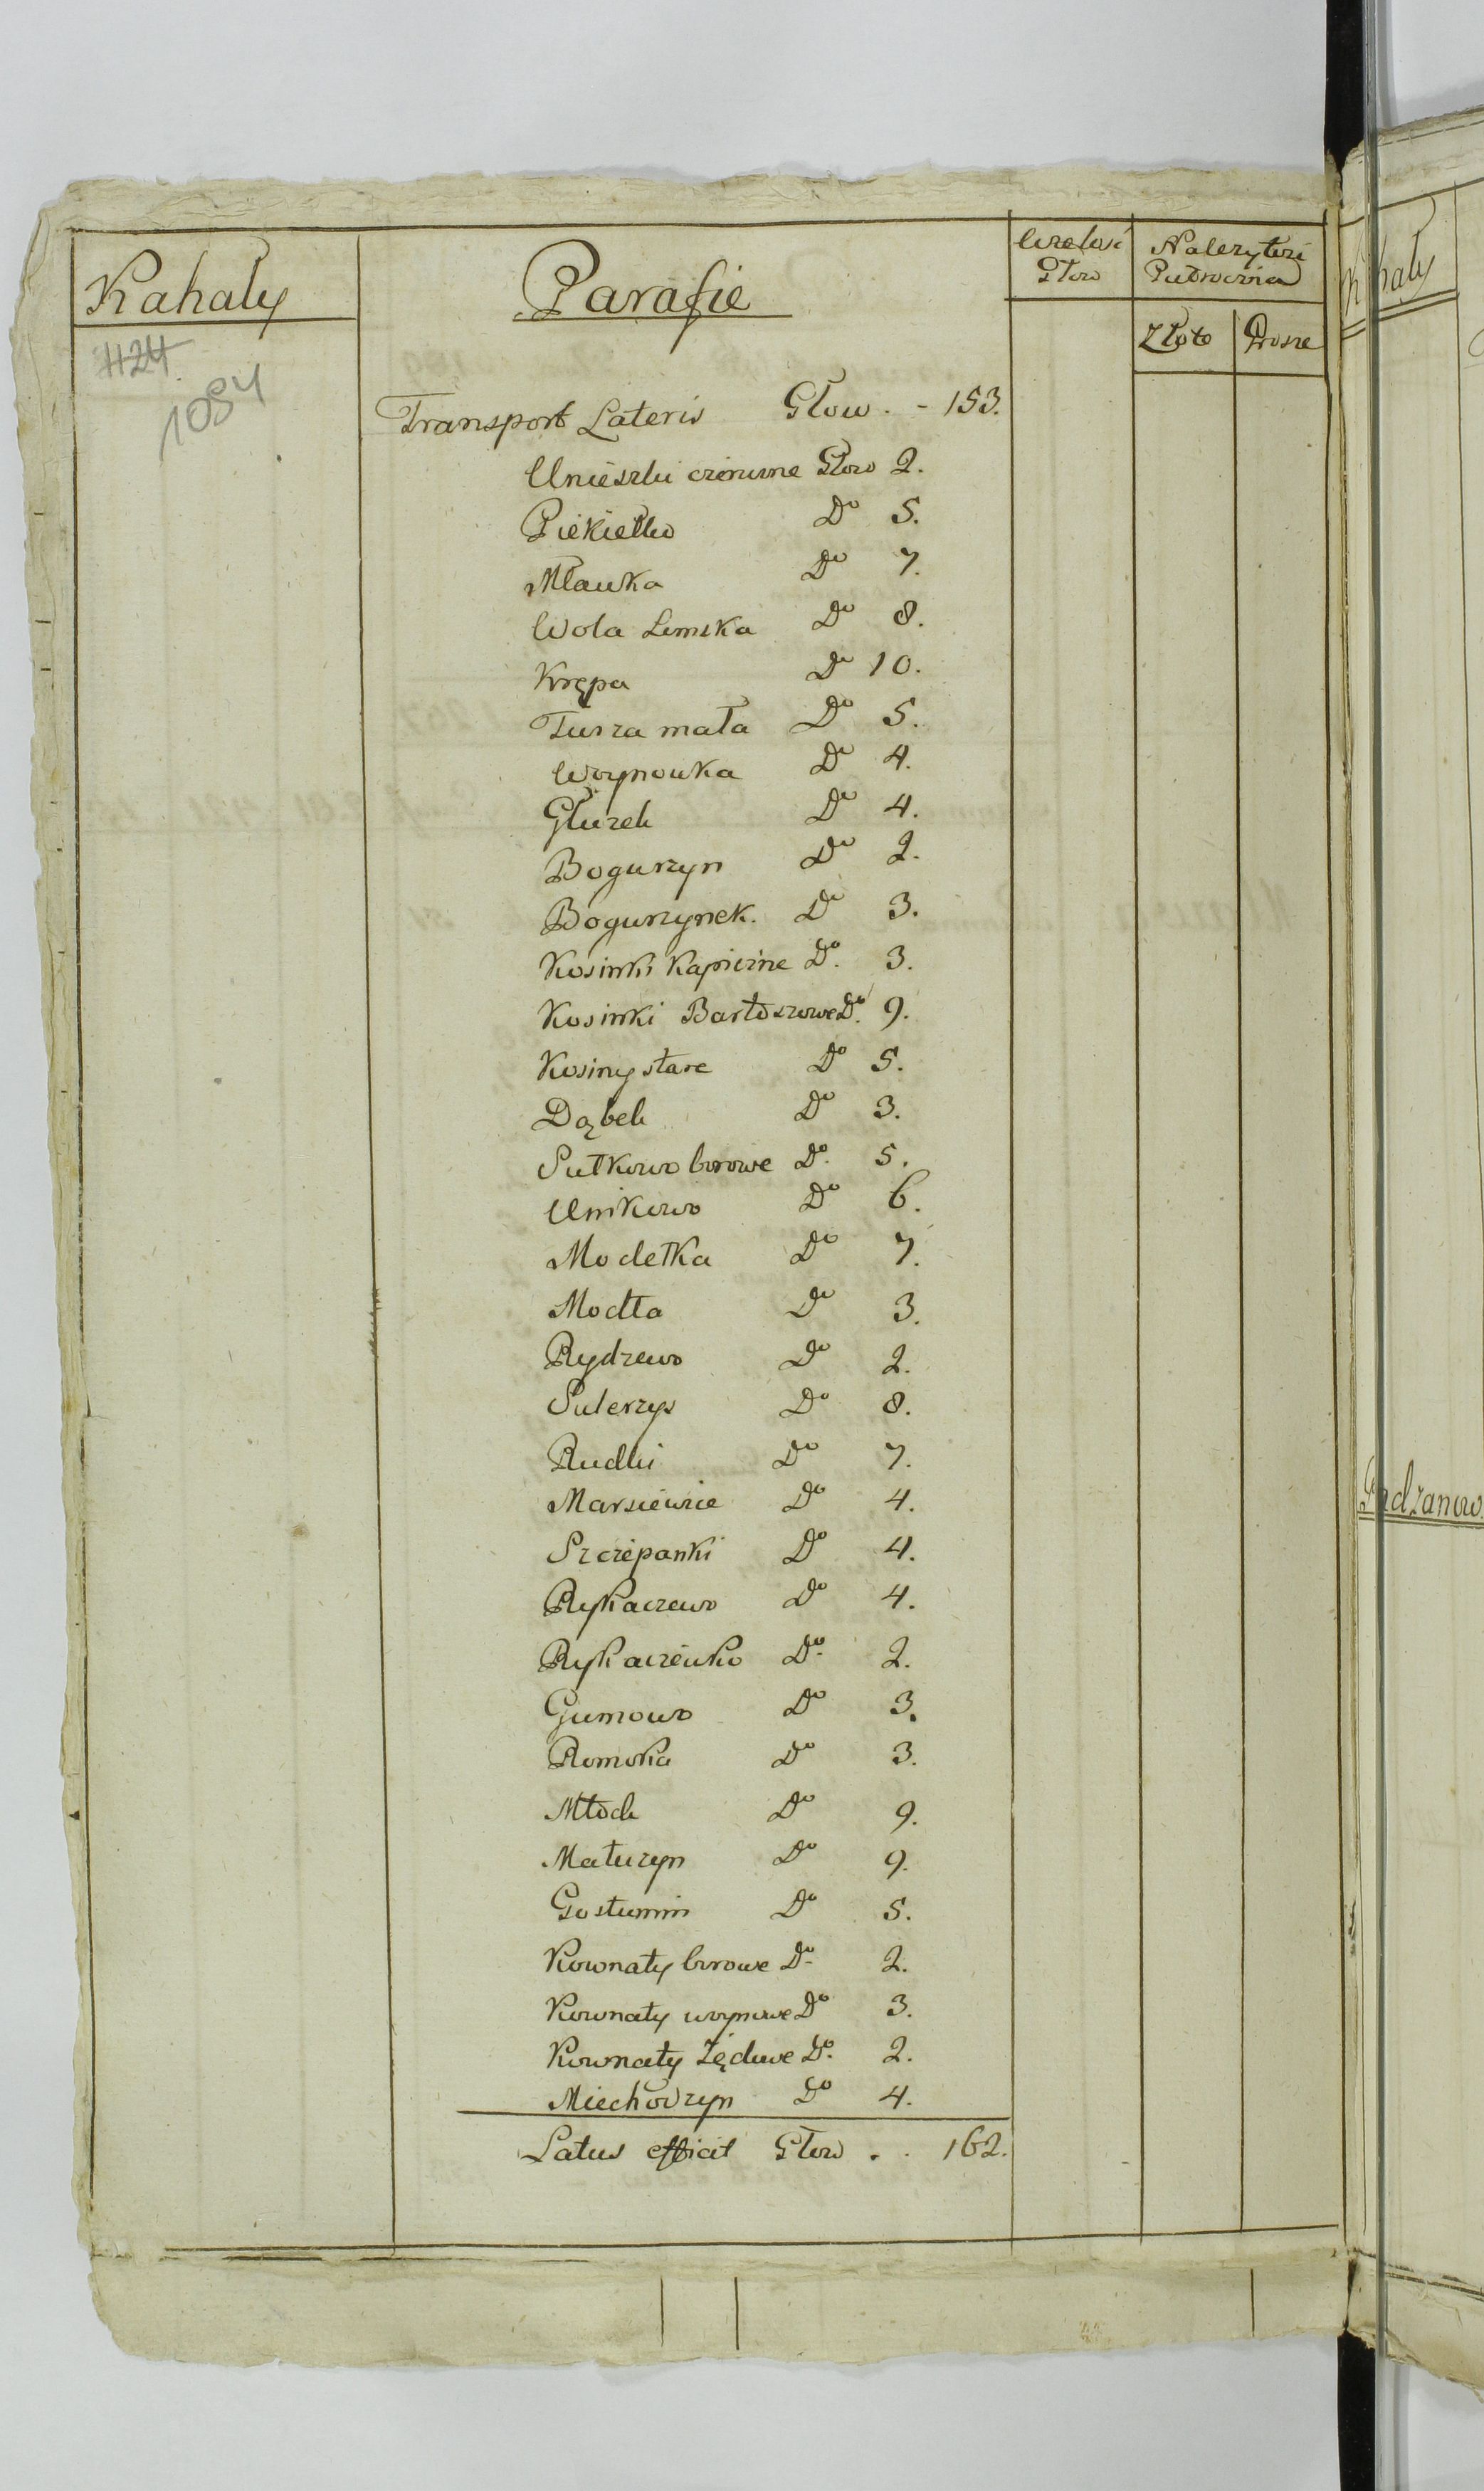 Kahały
Parafie
Głow
Złote
Grosze
#24
1084
Transport Lateris Głow . - 153.
Unieszki czinszne Głow 2.
Piekiełko Do 5.
Mławka Do 7.
Wola Lemska Do 8.
Krępa Do 10.
Turza mała Do 5.
Woynowka Do 4.
Głużek Do 4.
Bogurzyn Do 2.
Bogurzynek. Do 3.
Kosinki Kapiczne Do. 3.
Kosinki Bartoszowe Do. 9.
Kosiny stare Do 5.
Dąbek Do 3.
Sułkowo borowe Do. 5.
Unikowo Do 6.
Modełka Do 7.
Modła Do 3.
Rydzewo Do 2.
Sulerzys Do 8.
Rudki Do 7.
Marsiewice Do 4.
Szczepanki Do 4.
Rykaczewo Do 4.
Rykaczewko Do. 2.
Gumowo Do 3.
Romoka Do 3.
Młock Do 9.
Maluzyn Do 9.
Gostumin Do 5.
Kownaty borowe Do 2.
Kownaty woynowe Do 3.
Kownaty Żędowe Do. 2.
Miechowzyn Do 4.
Latus efficit Głow . . 162.